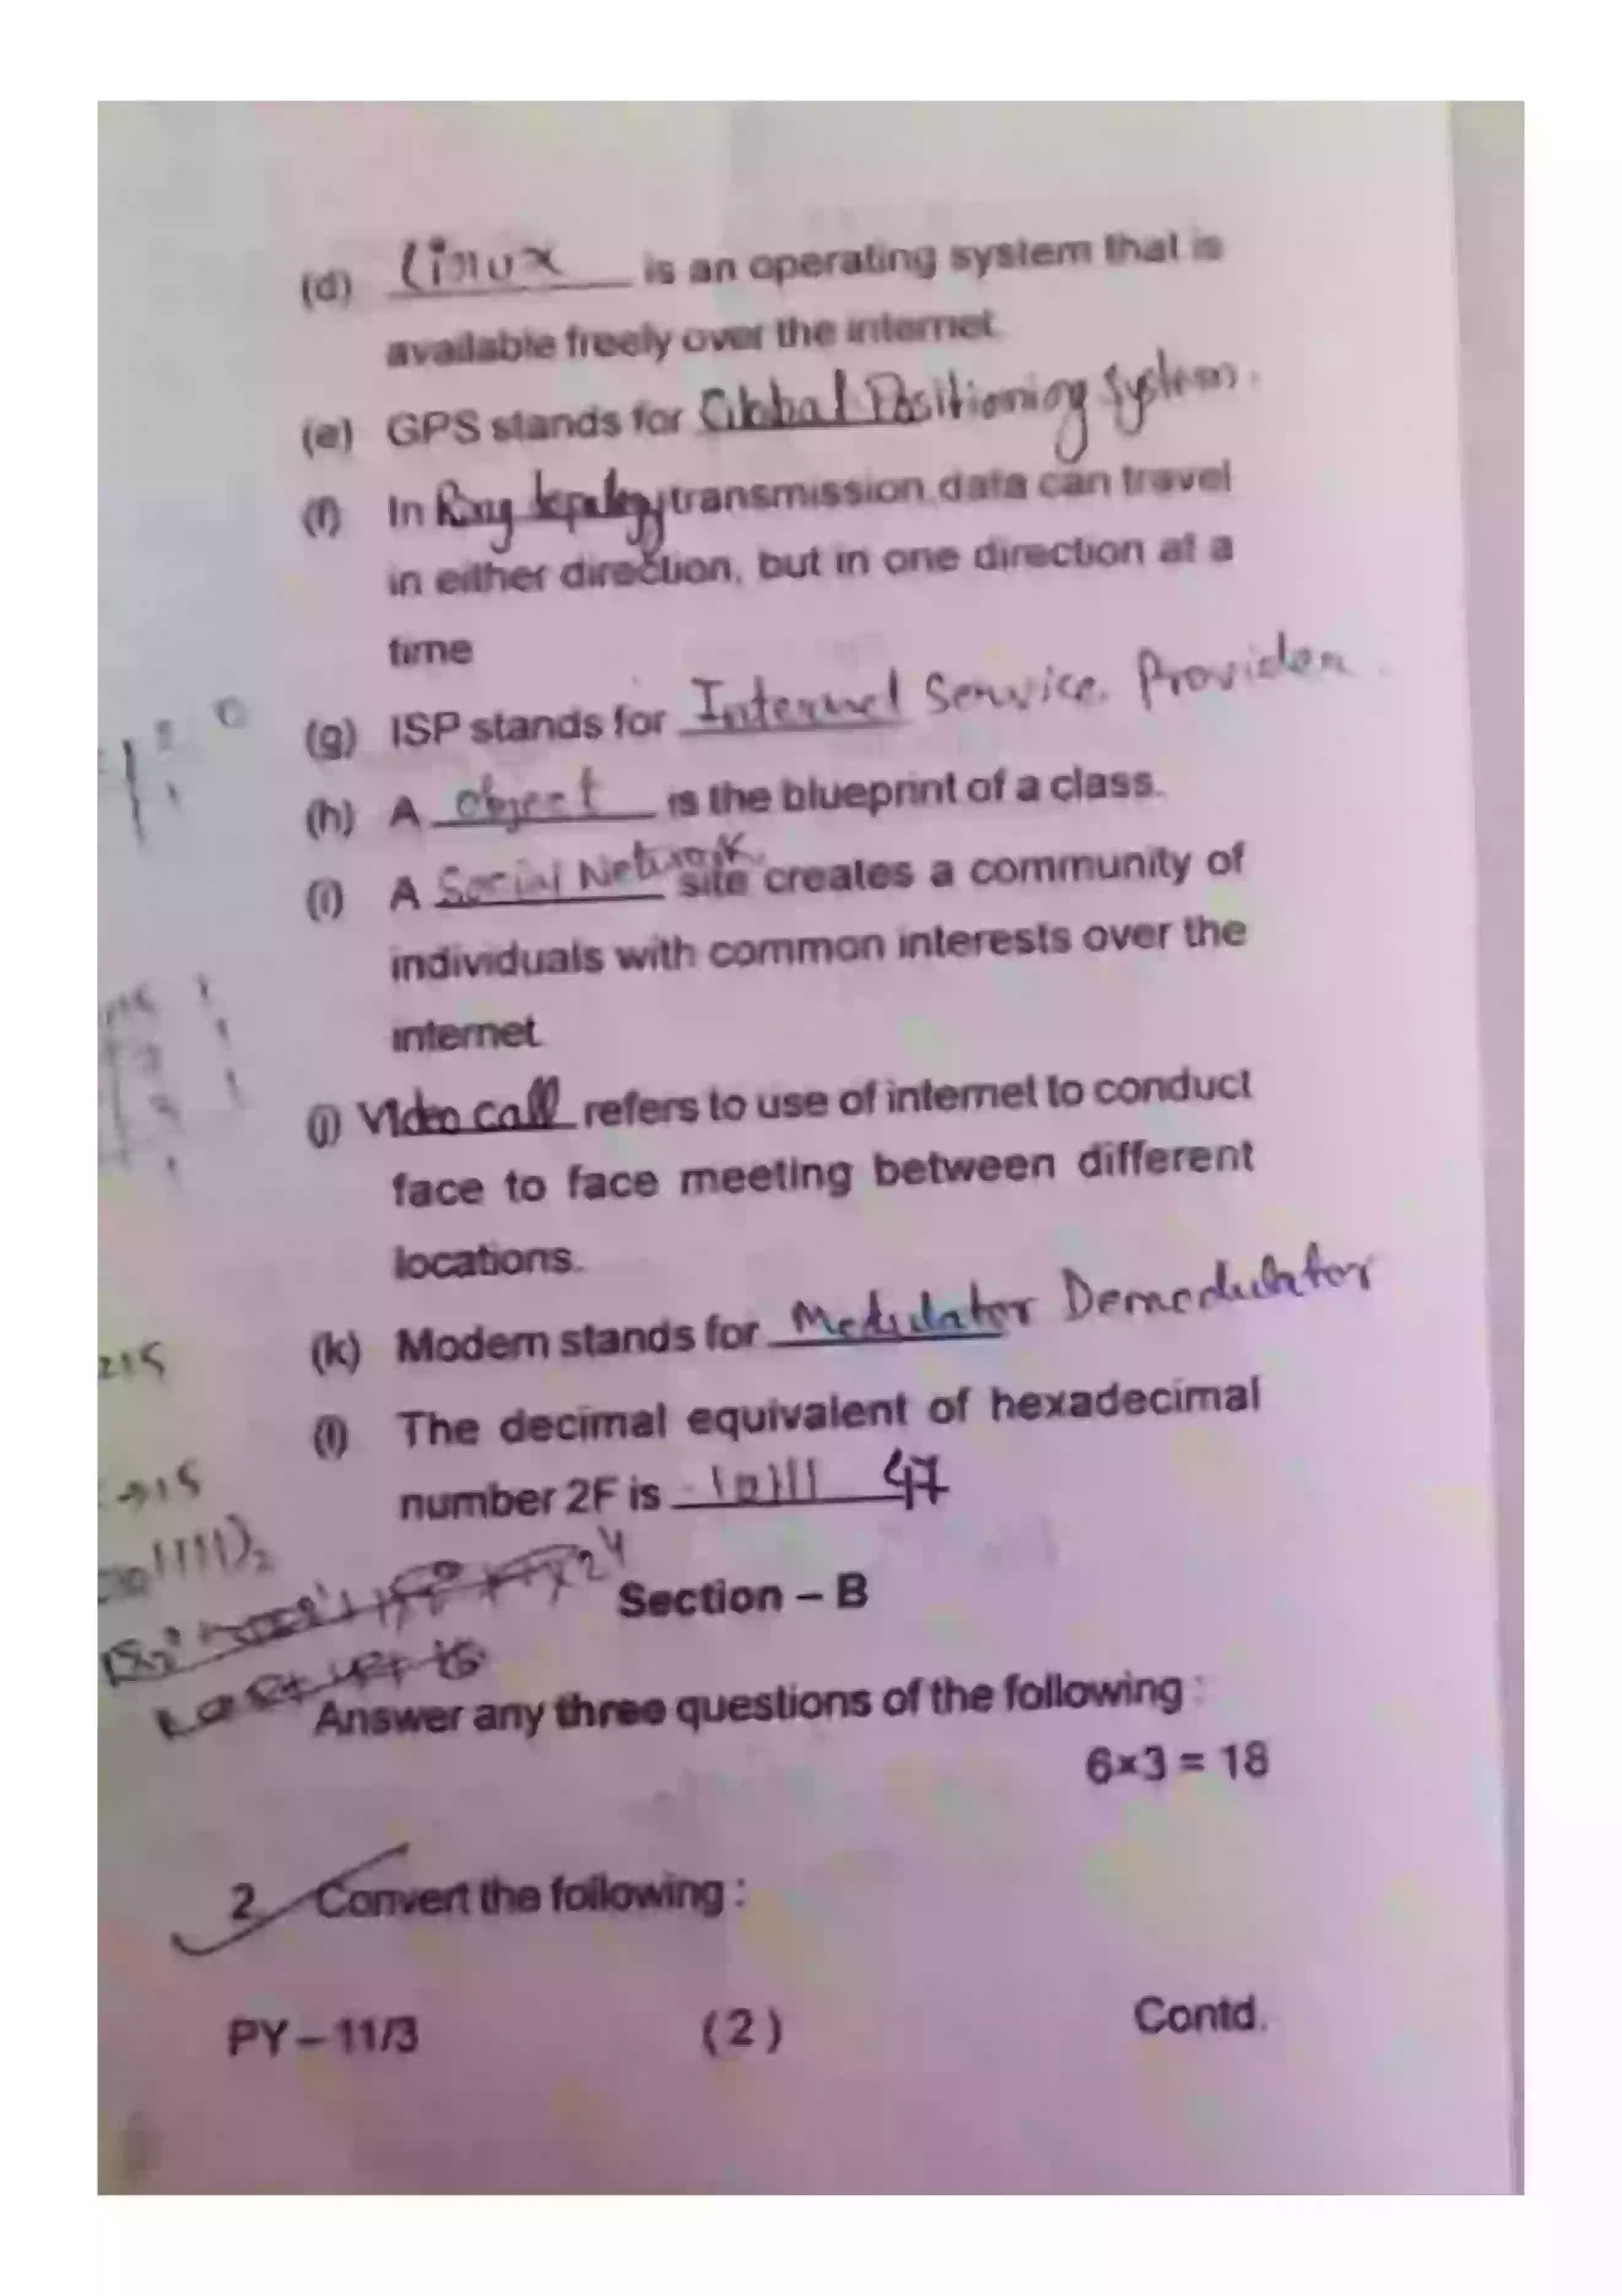 (d) Linux is an operating system that is
available freely over the internet.
(e) GPS stands for Global Positioning System.
(f) In Ring topology transmission data can travel
in either direction, but in one direction at a
time
(g) ISP stands for Internet Service Provider
(h) A object is the blueprint of a class.
(i) A Social Network site creates a community of
individuals with common interests over the
internet.
(j) Video call refers to use of internet to conduct
face to face meeting between different
locations.
(k) Modem stands for Modulator Demodulator
215
(l) The decimal equivalent of hexadecimal
number 2F is 10111 47
→15
Section – B
Answer any three questions of the following :
6×3 = 18
2. Convert the following :
PY – 11/3 (2) Contd.